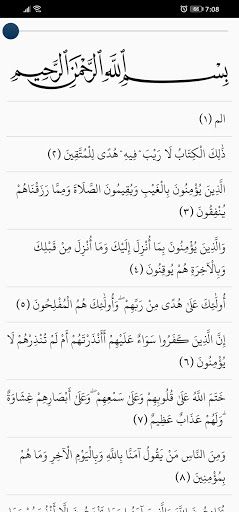 7:08
بِسْمِ ٱللَّهِ ٱلرَّحْمَٰنِ ٱلرَّحِيمِ
الم (١)
ذَٰلِكَ الْكِتَابُ لَا رَيْبَ ۛ فِيهِ ۛ هُدًى لِلْمُتَّقِينَ (٢)
الَّذِينَ يُؤْمِنُونَ بِالْغَيْبِ وَيُقِيمُونَ الصَّلَاةَ وَمِمَّا رَزَقْنَاهُمْ
يُنْفِقُونَ (٣)
وَالَّذِينَ يُؤْمِنُونَ بِمَا أُنْزِلَ إِلَيْكَ وَمَا أُنْزِلَ مِنْ قَبْلِكَ
وَبِالْآخِرَةِ هُمْ يُوقِنُونَ (٤)
أُولَٰئِكَ عَلَىٰ هُدًى مِنْ رَبِّهِمْ ۖ وَأُولَٰئِكَ هُمُ الْمُفْلِحُونَ (٥)
إِنَّ الَّذِينَ كَفَرُوا سَوَاءٌ عَلَيْهِمْ أَأَنْذَرْتَهُمْ أَمْ لَمْ تُنْذِرْهُمْ لَا
يُؤْمِنُونَ (٦)
خَتَمَ اللَّهُ عَلَىٰ قُلُوبِهِمْ وَعَلَىٰ سَمْعِهِمْ ۖ وَعَلَىٰ أَبْصَارِهِمْ غِشَاوَةٌ
ۖ وَلَهُمْ عَذَابٌ عَظِيمٌ (٧)
وَمِنَ النَّاسِ مَنْ يَقُولُ آمَنَّا بِاللَّهِ وَبِالْيَوْمِ الْآخِرِ وَمَا هُمْ
بِمُؤْمِنِينَ (٨)